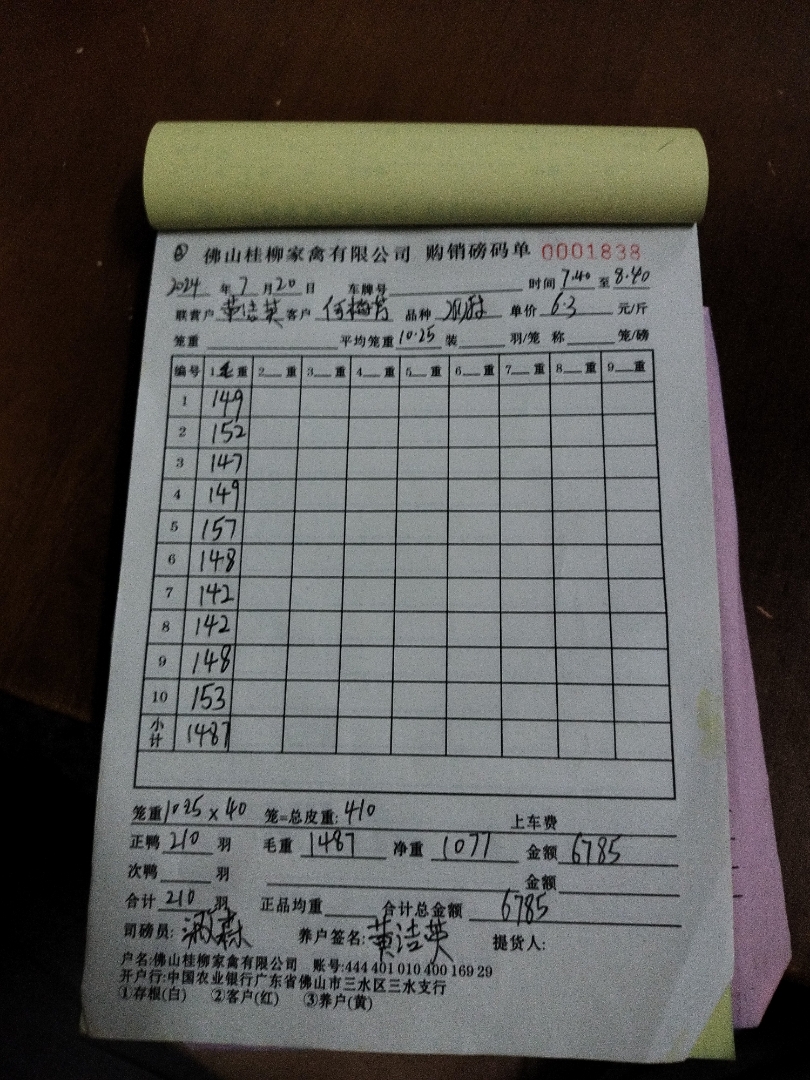 佛山桂柳家禽有限公司 购销磅码单 0001838
2024 年 7 月 20 日 车牌号 时间 7.40 至 8.40
联营户 黄洁英 客户 何 品种 单价 6.3 元/斤
笼重 平均笼重 10.25 装 羽/笼 称 笼/磅
编号 1 毛 重 2 重 3 重 4 重 5 重 6 重 7 重 8 重 9 重
1 149
2 152
3 147
4 149
5 157
6 148
7 142
8 142
9 148
10 153
小计 1487
笼重 10.25 × 40 笼=总皮重: 410 上车费
正鸭 210 羽 毛重 1487 净重 1077 金额 6785
次鸭 羽 金额
合计 210 羽 正品均重 合计总金额 6785
司磅员: 森 养户签名: 黄洁英 提货人:
户名:佛山桂柳家禽有限公司 账号:444 401 010 400 169 29
开户行:中国农业银行广东省佛山市三水区三水支行
①存根(白) ②客户(红) ③养户(黄)